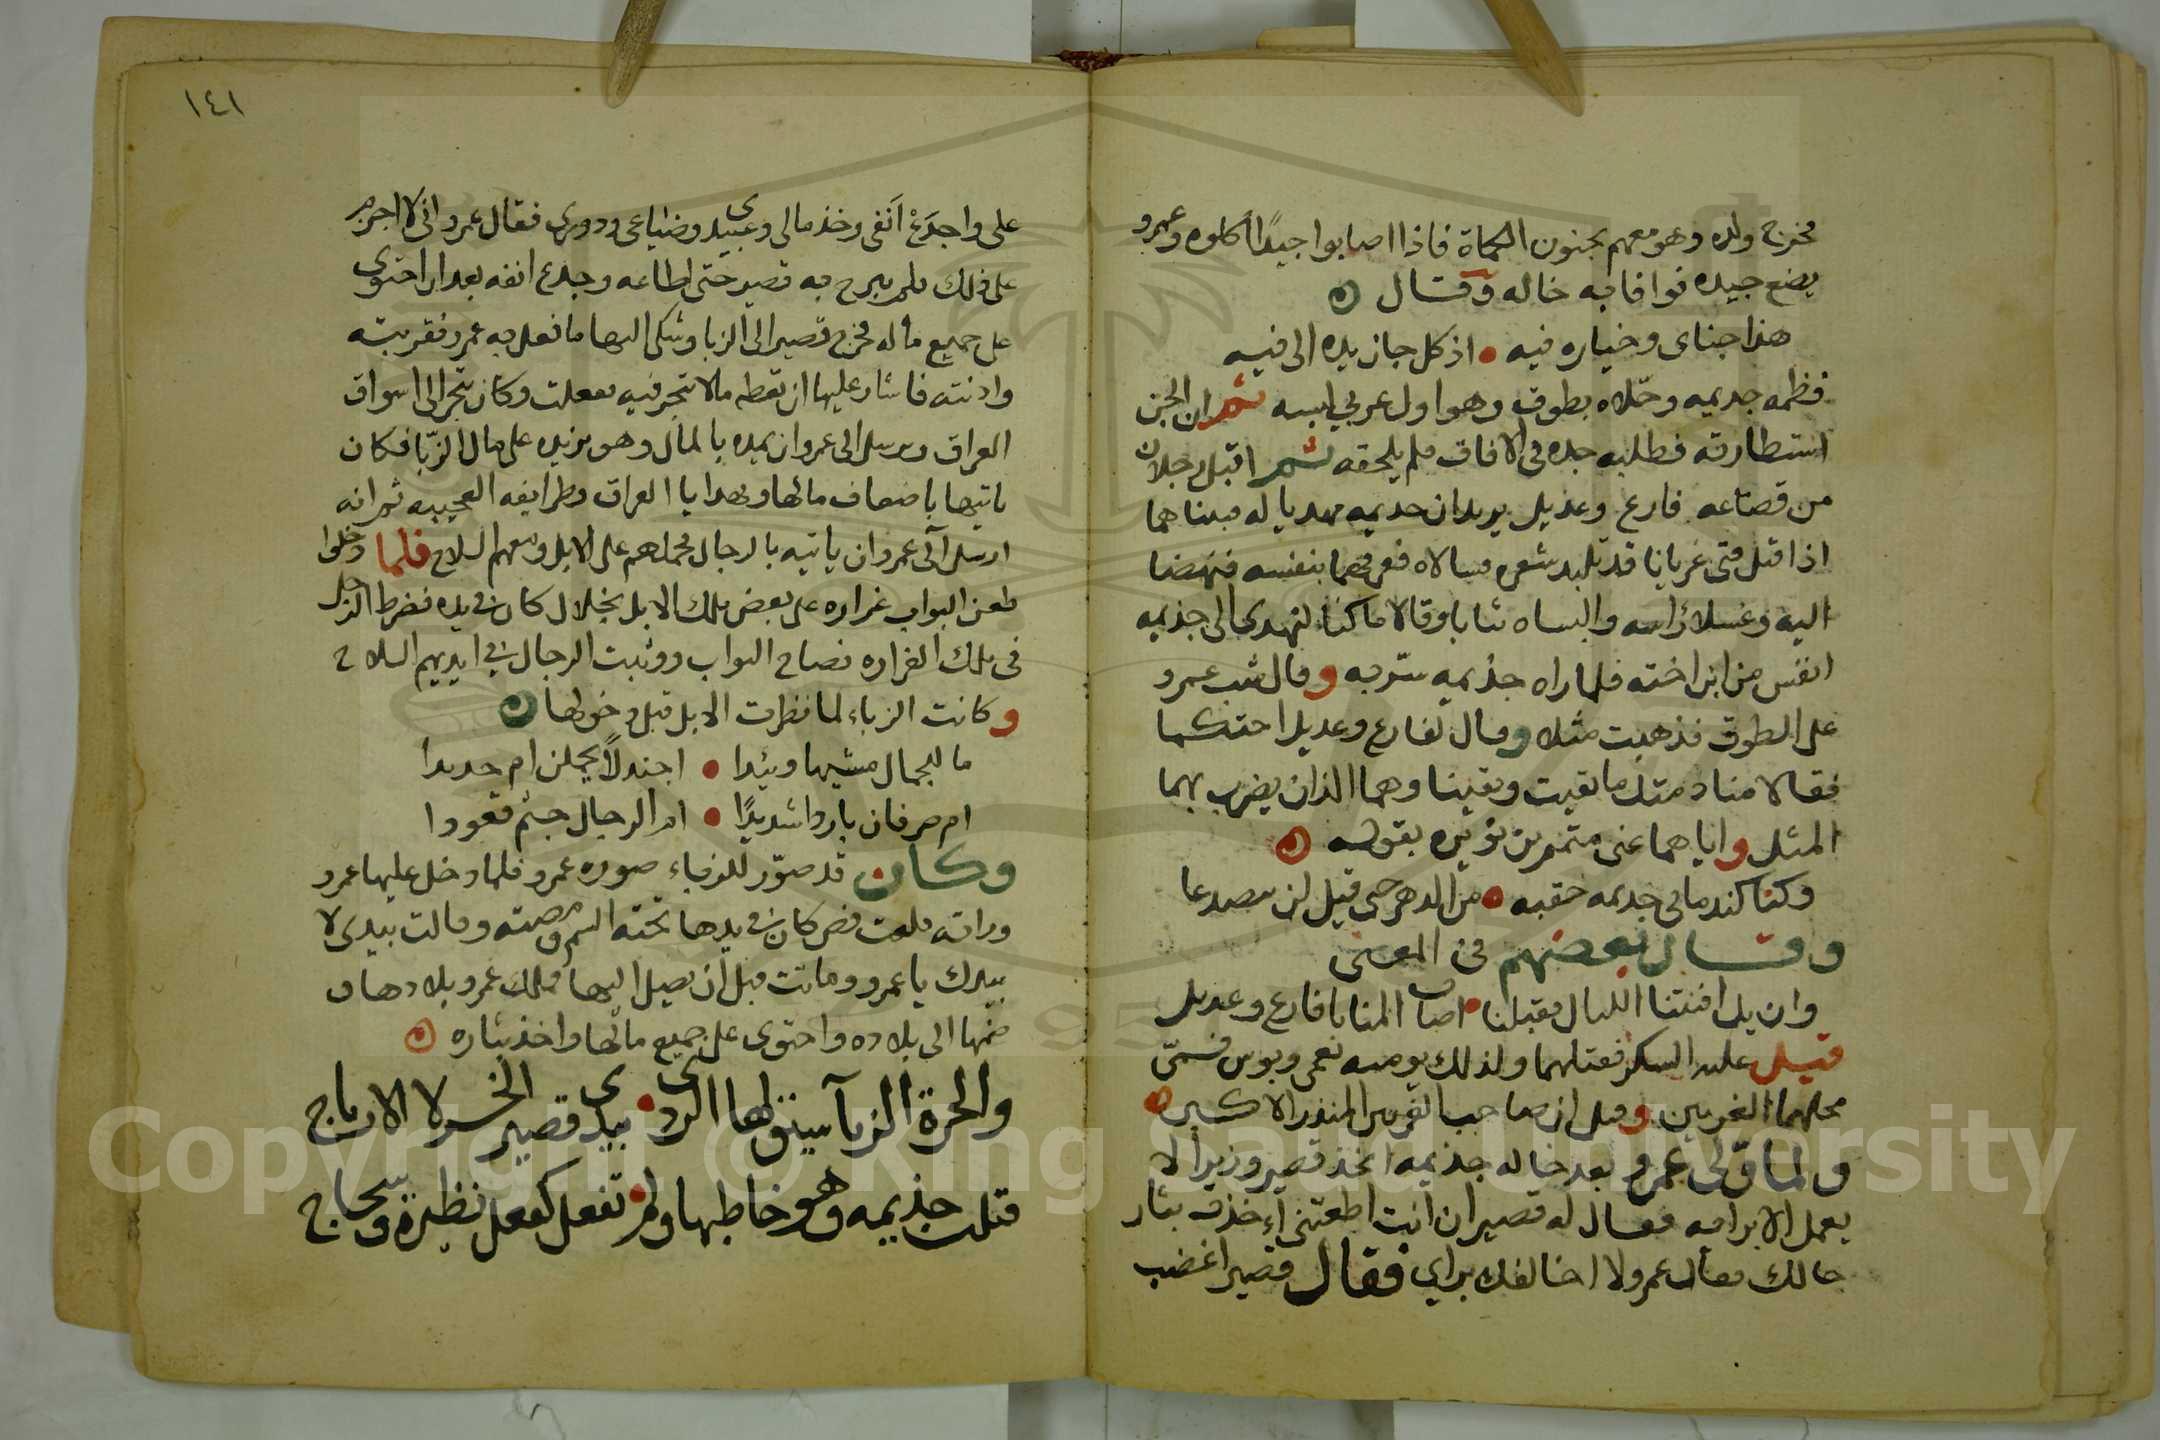 فخرج ولده وهو معهم يجنون الكماة فاذا اصابوا جيدًا اكلوه وعمرو
يضع جيده فوافا به خاله وقال
هذا جناى وخياره فيه اذ كل جان يده الى فيه
فظمه جديمه وحلاه بطوق وهو اول عربي لبسه ثم ان الجن
استطارته فطلبه جده فى الافاق فلم يلحقه ثم اقبل رجلان
من قضاعه فارع وعذيل يريدان جديمه بهدايا له فبينا هما
اذا قبل فتى عريانا قد تلبد شعره فسالاه فعرفهما بنفسه فنهضا
اليه وغسلا راسه والبساه ثيابا وقالا ما كنا لنهدى الى جذيمه
انفس من ابن اخته فلما راه جذيمه سر به وقال شب عمرو
على الطوق فذهبت مثلا وقال لفارع وعديل احتكما
فقالا منادمتك ما بقيت وبقينا وهما اللذان يضرب بهما
المثل واياهما عنى متمم بن نويره بقوله
وكنا كندمانى جديمه حقبه من الدهر حتى قيل لن يتصدعا
وقال بعضهم فى المعنى
وان يك افنتنا الليال فقبلنا اصاب المنايا فارع وعديل
قيل عليه السكر فقتلهما ولذلك يوميه نعمى وبوس فسمى
محلهما الغريين وقيل ان صاحب الغريين المنذر الاكبر
ولما ولى عمرو بعد خاله جذيمه اتخذ قصير وزيرا لا
يعمل الا برايه فقال له قصير ان انت اطعتنى اخذت بثار
خالك فقال عمرو لا اخالفك براي فقال قصير اغضب
١٤١
على واجدع انفى وخذ مالى وعبيدى وضياعى ودورى فقال عمرو انى لا اجرم
على ذلك فلم يبرح به قصير حتى اطاعه وجدع انفه بعد ان احتوى
على جميع ماله فخرج قصير الى الزبا وشكى اليها ما فعل به عمرو فقربته
وادنته فاشار عليها ان تعطه مالا يتجر فيه ففعلت وكان يتجر الى اسواق
العراق ويرسل الى عمرو ان يمده بالمال وهو يزيده على مال الزبا فكان
ياتيها باضعاف مالها وبهدايا العراق وطرايفه العجيبه ثم انه
ارسل الى عمرو ان ياتيه بالرجال فحملهم على الابل ومعهم السلاح فلما دخلوا
طعن البواب غراره على بعض تلك الابل بخلال كان فى يده فضرط الرجل
فى تلك الغراره فصاح البواب ووثبت الرجال فى ايديهم السلاح
وكانت الزباء لما نظرت الابل قبل دخولها
ما للجمال مشيها وئيدا اجندلاً يحملن ام حديدا
ام صرفان باردا شديدًا ام الرجال جثم قعودا
وكان قد صور للزباء صوره عمرو فلما دخل عليها عمرو
وراته قلعت فص كان فى يدها تحته السم فمصته وقالت بيدى لا
بيدك يا عمرو وماتت قبل ان يصل اليها فملك عمرو بلادها و
ضمها الى بلاده واحتوى على جميع مالها واخذ بثاره
والحرة الزبا سيق لها الردى بيدى قصير الخسر لا الارباح
قتلت جذيمه وهو خاطبها ولم تفعل كفعل نظيرة وسجاح
Copyright © King Saud University